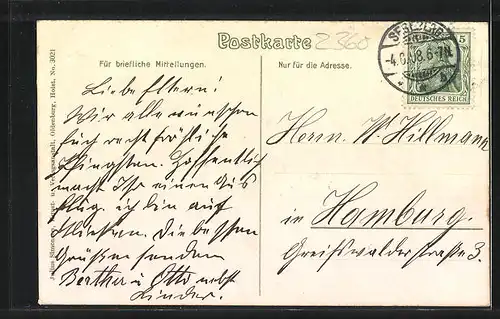 Postkarte
Z 360
Für briefliche Mitteilungen.
Nur für die Adresse.
SEGEBERG
-4.6.08.6-7N.
5
DEUTSCHES REICH
Liebe Eltern!
Wir alle wünschen
Euch recht fröhliche
Pfingsten. Hoffentlich
macht Ihr einen Aus
flug. ich bin auf
Die besten
Grüße senden
Bertha u. Otto nebst
Kinder.
Herrn W. Hillmann
in Hamburg.
Greifswalderstraße 3.
Julius Simonsen, Kunst- u. Verlagsanstalt, Oldenburg, Holst. No. 3021